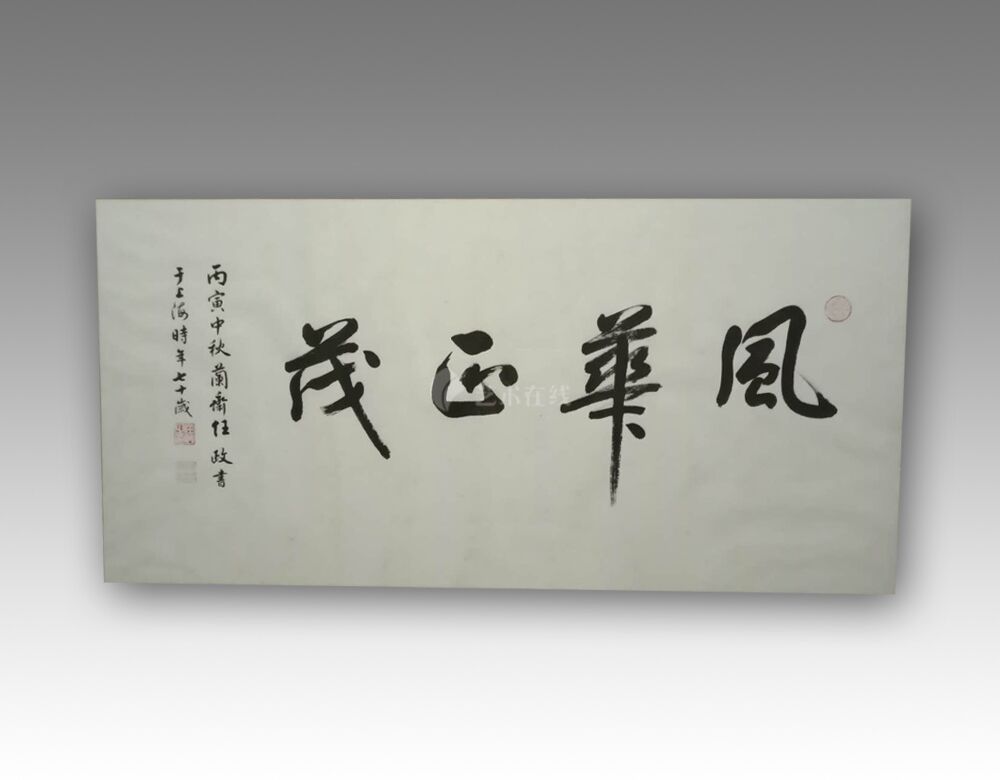 風華正茂
丙寅中秋蘭齋任政書
于上海時年七十歲